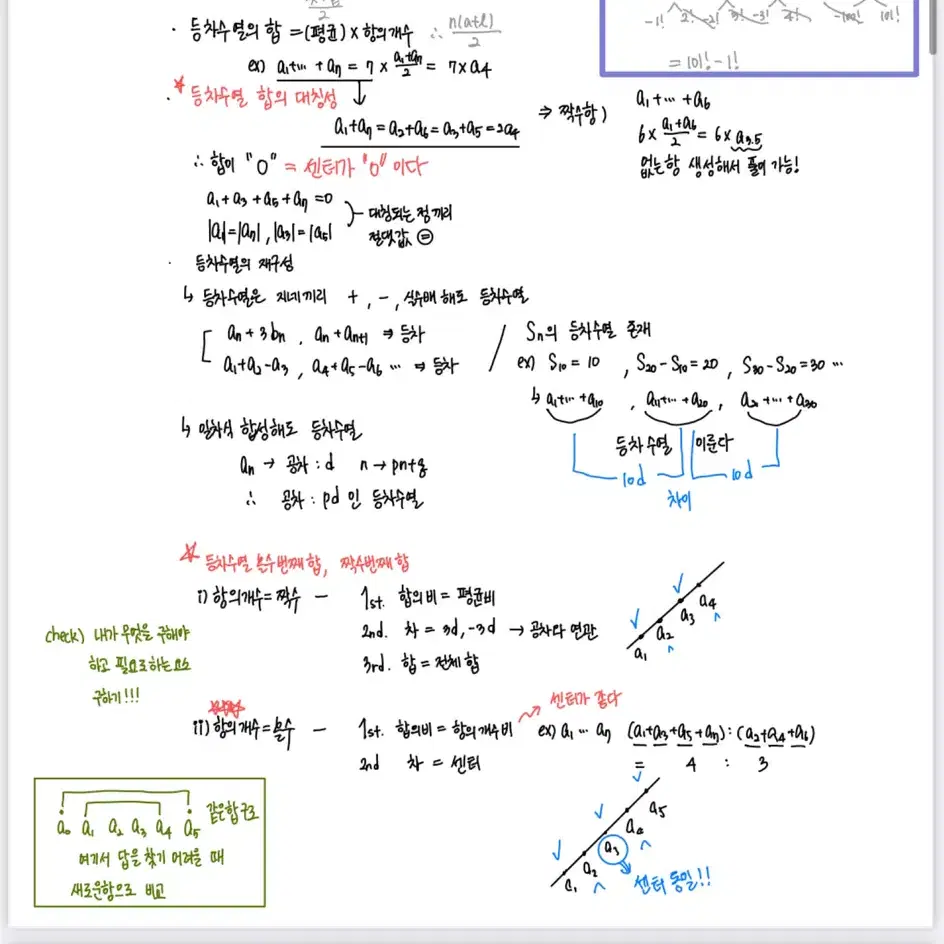 · 등차수열의 합 = (평균) × 항의개수 ∴ n(a+l)/2
ex) a₁+⋯+a₇ = 7 × (a₁+a₇)/2 = 7×a₄
-1! 2! -2! 3! -3! 4! -100! 101!
= 101! - 1!
* 등차수열 합의 대칭성
a₁+a₇ = a₂+a₆ = a₃+a₅ = 2a₄
⇒ 짝수항) a₁+⋯+a₆
6× (a₁+a₆)/2 = 6×a₃.₅
없는항 생성해서 풀이 가능!
∴ 합이 "0" = 센터가 "0"이다
a₁+a₃+a₅+a₇=0
|a₁|=|a₇|, |a₃|=|a₅|
대칭되는 점끼리
절댓값 =
· 등차수열의 재구성
↳ 등차수열은 지네끼리 +, -, 실수배 해도 등차수열
aₙ+3bₙ, aₙ+aₙ₊₁ ⇒ 등차
a₁+a₂-a₃, a₄+a₅-a₆ ⋯ ⇒ 등차
Sₙ의 등차수열 존재
ex) S₁₀=10, S₂₀-S₁₀=20, S₃₀-S₂₀=30 ⋯
↳ a₁+⋯+a₁₀, a₁₁+⋯+a₂₀, a₂₁+⋯+a₃₀
등차수열 이룬다
10d 10d
차이
↳ 일차식 합성해도 등차수열
aₙ → 공차 : d n → pn+q
∴ 공차 : pd 인 등차수열
* 등차수열 홀수번째합, 짝수번째합
i) 항의개수=짝수 - 1st. 합의비 = 평균비
2nd. 차 = 3d, -3d → 공차와 연관
3rd. 합 = 전체합
a₁ a₂ a₃ a₄
check) 내가 무엇을 구해야
하고 필요로하는 요소
구하기!!!
ii) 항의개수=홀수 - 1st. 합의비 = 항의개수비
센터가 같다
ex) a₁⋯a₇ (a₁+a₃+a₅+a₇):(a₂+a₄+a₆)
= 4 : 3
2nd 차 = 센터
a₁ a₂ a₃ a₄ a₅
센터 동일!!
a₀ a₁ a₂ a₃ a₄ a₅ 같은합구로
여기서 답을 찾기 어려울 때
새로운항으로 비교